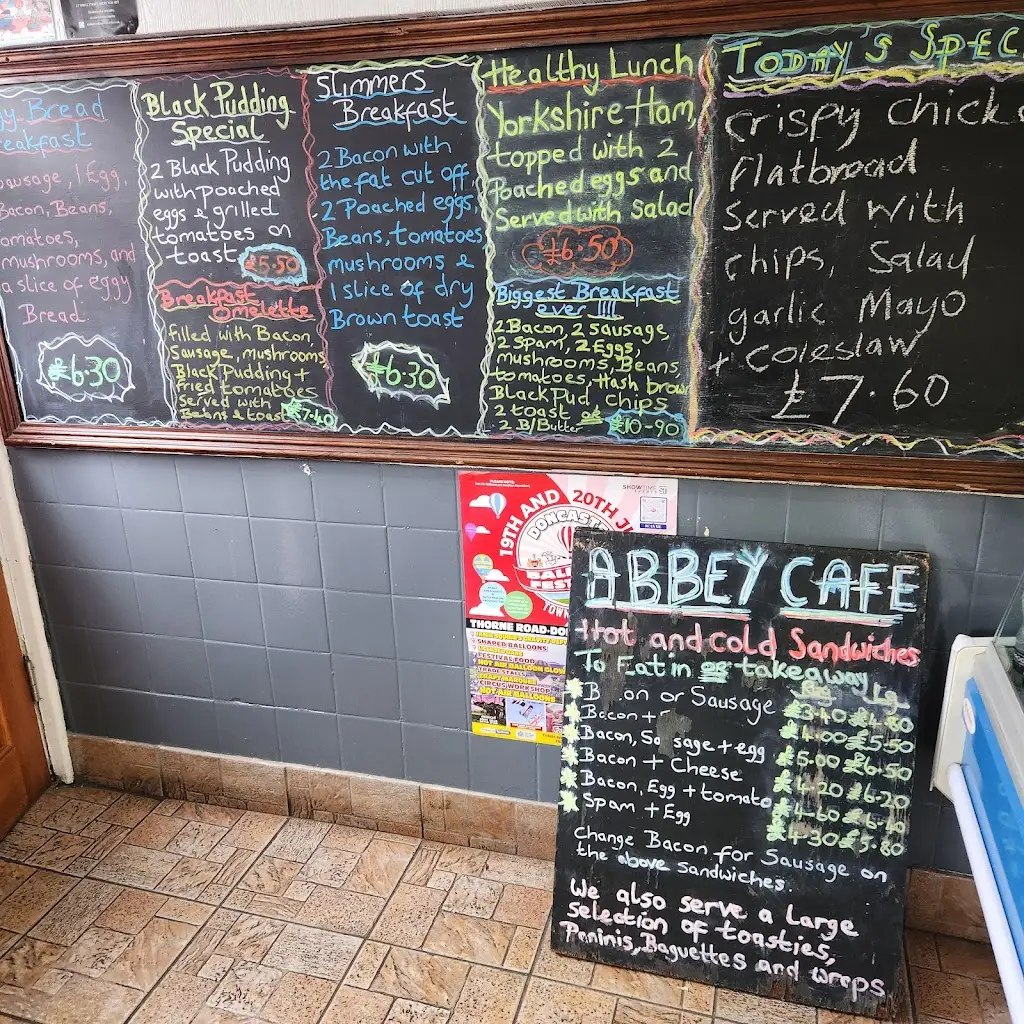 Bread
2 Bacon, Beans,
mushrooms, and
a slice of eggy
Bread.
£6.30
Black Pudding
Special
2 Black Pudding
with poached
eggs & grilled
tomatoes on
toast
£5.50
Breakfast
Omelette
filled with Bacon,
Sausage, mushrooms,
Black Pudding +
fried tomatoes
Served with
Beans & toast £7.40
Slimmers
Breakfast
2 Bacon with
the fat cut off,
2 Poached eggs,
Beans, tomatoes
mushrooms &
1 slice of dry
Brown toast
£6.30
Healthy Lunch
Yorkshire Ham,
topped with 2
Poached eggs and
Served with Salad
£6.50
Biggest Breakfast
ever !!!!
2 Bacon, 2 sausage,
2 Spam, 2 Eggs,
mushrooms, Beans,
tomatoes, Hash brown
Black Pud, chips
2 toast or
2 B/Butter £10-90
Today's Spec
Crispy Chick
flatbroad
Served with
chips, Salad
garlic Mayo
+ Coleslaw
£7.60
19TH AND 20TH
DONCAST
THORNE ROAD
SHARED BALLOONS
FESTIVAL FOOD
HOT AIR BALLOON GLOW
TRADE STALLS
CRAFT MARQUEE
CIRCUS WORKSHOP
ABBEY CAFE
Hot and cold Sandwiches
To Eat in or takeaway
Lg
on or Sausage £3.40 £4.80
Bacon + £4.00 £5.50
Bacon, Sa sage + egg £5.00 £6.50
Bacon + Cheese £4.20 £6.20
Bacon, Egg + tomato £4.60
Spam + Egg £4.30 £5.80
Change Bacon for Sausage on
the above sandwiches.
We also serve a Large
Selection of toasties,
Paninis, Baguettes and wraps